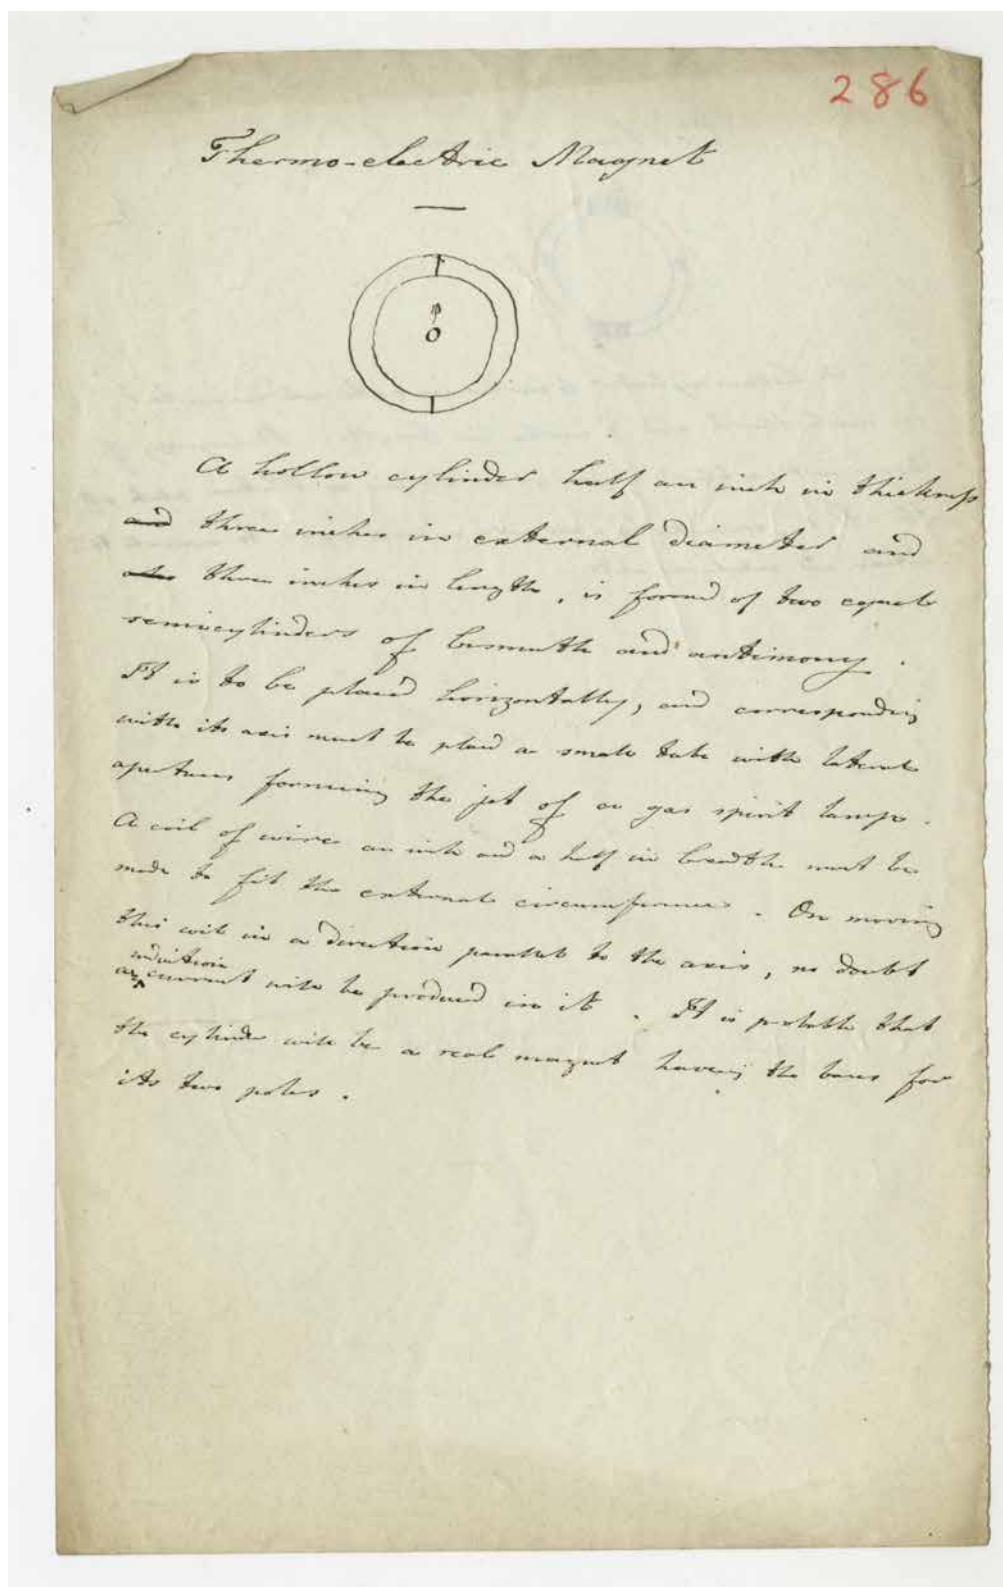 286
Thermo-electric Magnet
A hollow cylinder half an inch in thickness
and three inches in external diameter and
three inches in length, is formed of two equal
semicylinders of bismuth and antimony.
It is to be placed horizontally, and corresponding
with its axis must be placed a small tube with lateral
apertures forming the jet of a gas spirit lamp.
A coil of wire an inch and a half in breadth must be
made to fit the external circumference. On moving
this coil in a direction parallel to the axis, no doubt
induction
a current will be produced in it. It is probable that
the cylinder will be a real magnet having the bases for
its two poles.